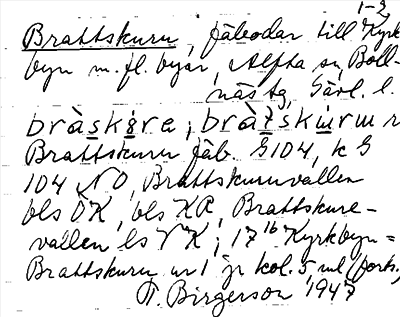 1-2
Brattskuru, fäbodar till Kyrk
byn m. fl. byar, Alfta sn, Boll-
näs tg, Gävl. l.
bràskɵ̀re, bràtskùrur
Brattskuru fäb. G104, k G
104 NO, Brattskuruvallen
bls ÖK, bls KR, Brattskure-
vallen ls VK; 17 16 Kyrkbyn=
Brattskuru nr 1 jr kol. 5 ml (forts.)
T. Birgerson 1947